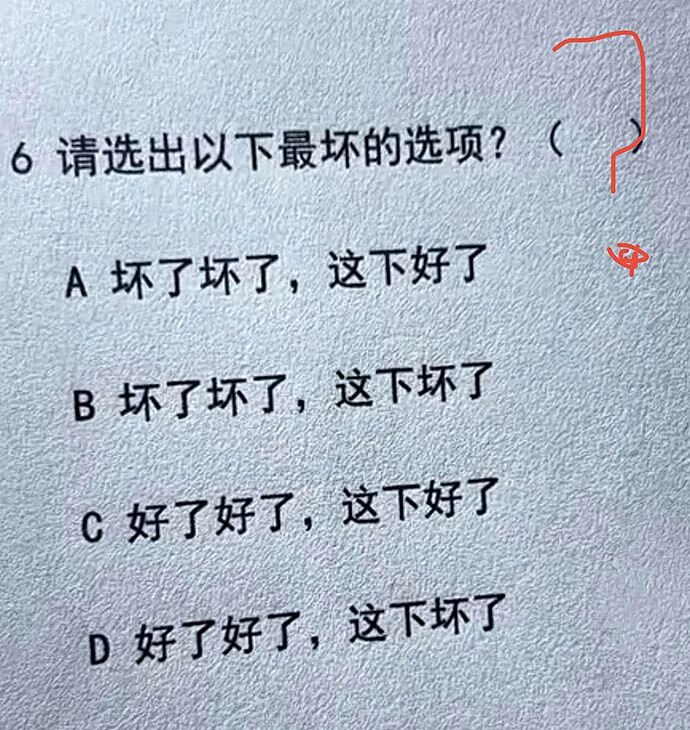 6 请选出以下最坏的选项?( )
A 坏了坏了,这下好了
B 坏了坏了,这下坏了
C 好了好了,这下好了
D 好了好了,这下坏了